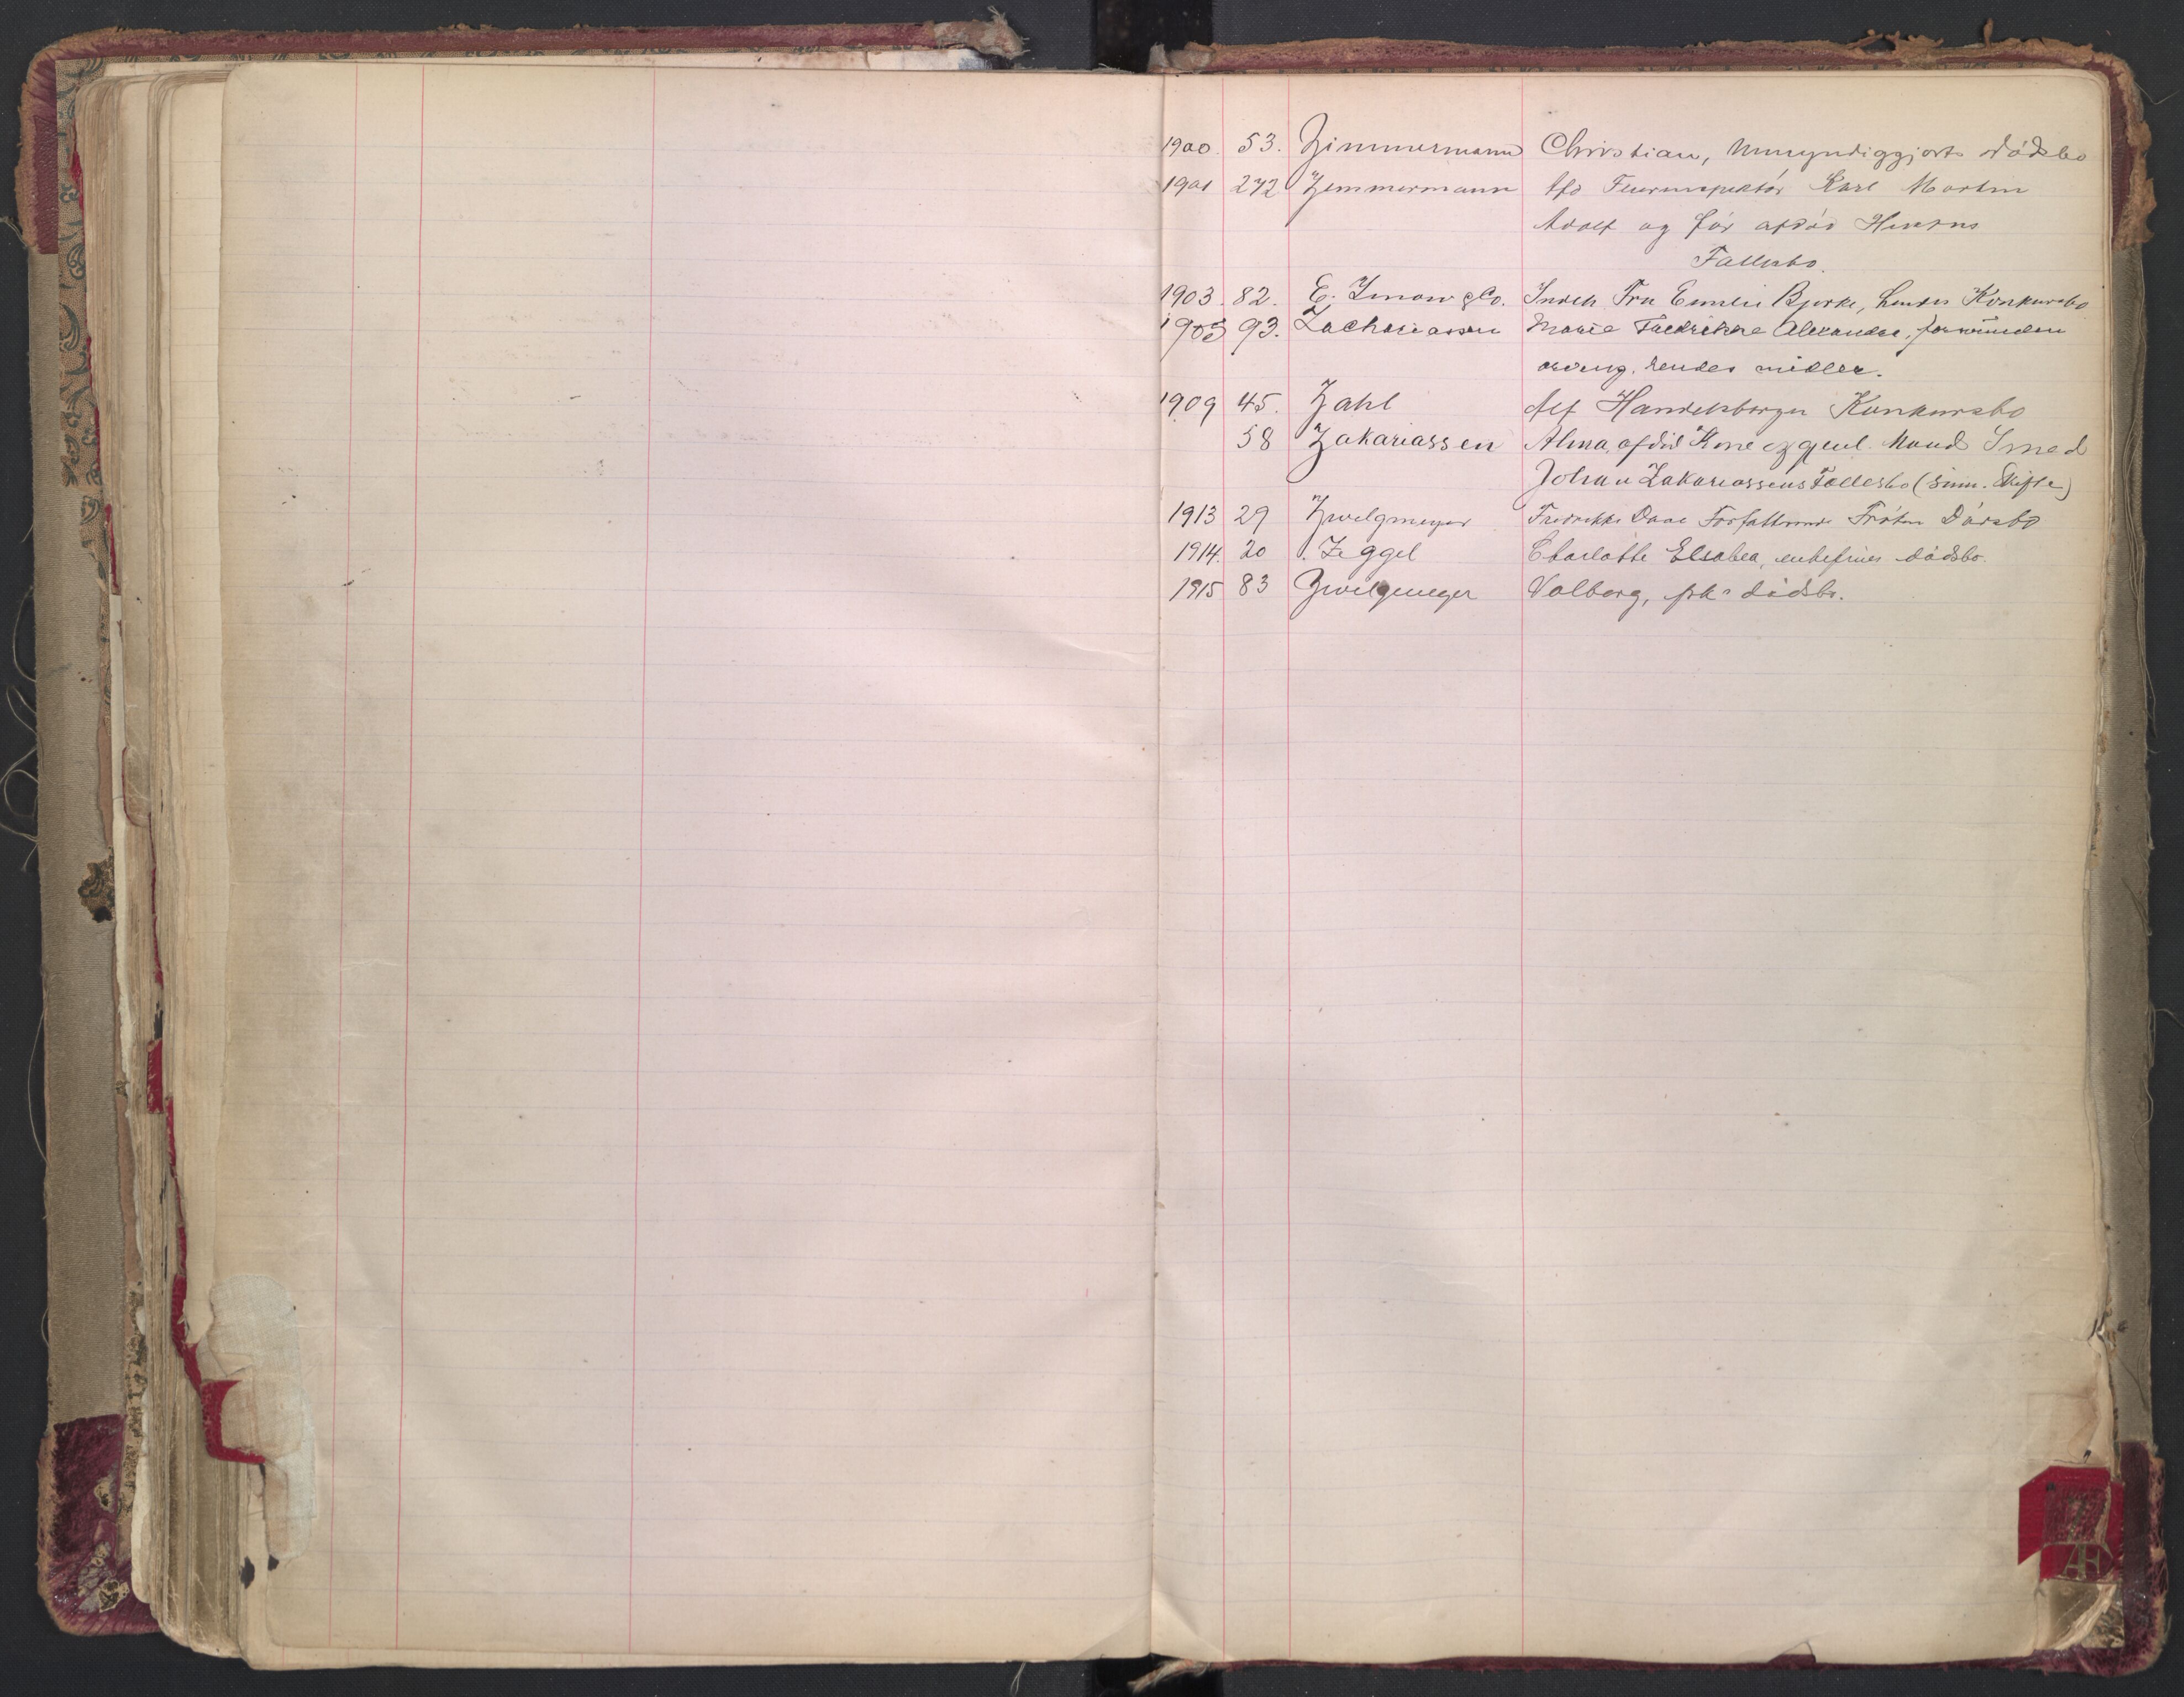 1900. 53. Zimmermann Christian, Umyndiggjorts dödsbo
1901 272 Zimmermann Karl Morten
Adolf og før afdød Hustrus
Fællesbo.
1903. 82. E. Zmow & Co. Indeh. Fru Emelie Bjerke, hendes Konkursbo
1905 93. Zachariassen Marie Fredrikke Alexandra, forsvunden
arving. hendes midler.
1909 45. Zahl Alf Handelsborger Konkursbo
58 Zakariassen Alma, afdød Kone og gjenl. Mand Smed
Johan Zakariassens Fællesbo (Smn. Skifte)
1913 29 Zwilgmeyer Fredrikke Daae Forfatterinde Frøken Dödsbo
1914. 20 Zeggel Charlotte Elsabea, enkefrues dödsbo.
1915 83 Zwilgmeyer Valborg, frk's dödsbo.
Z
Æ